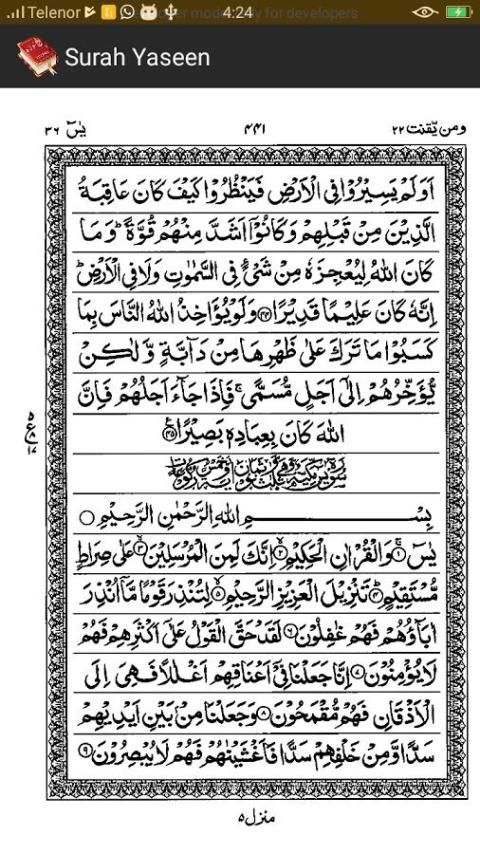 Telenor
4:24
mode only for developers
Surah Yaseen
ومن یقنت ۲۲
۴۴۱
یٰسٓ ۳۶
اَوَلَمْ یَسِیْرُوْا فِی الْاَرْضِ فَیَنْظُرُوْا کَیْفَ کَانَ عَاقِبَةُ
الَّذِیْنَ مِنْ قَبْلِهِمْ وَکَانُوْۤا اَشَدَّ مِنْهُمْ قُوَّةً ؕ وَمَا
کَانَ اللّٰهُ لِیُعْجِزَهٗ مِنْ شَیْءٍ فِی السَّمٰوٰتِ وَلَا فِی الْاَرْضِ ؕ
اِنَّهٗ کَانَ عَلِیْمًا قَدِیْرًا ﴿۴۴﴾ وَلَوْ یُؤَاخِذُ اللّٰهُ النَّاسَ بِمَا
کَسَبُوْا مَا تَرَكَ عَلٰی ظَهْرِهَا مِنْ دَآبَّةٍ وَّلٰکِنْ
یُّؤَخِّرُهُمْ اِلٰۤی اَجَلٍ مُّسَمًّی ۚ فَاِذَا جَآءَ اَجَلُهُمْ فَاِنَّ
اللّٰهَ کَانَ بِعِبَادِهٖ بَصِیْرًا ﴿۴۵﴾
بِسْمِ اللّٰهِ الرَّحْمٰنِ الرَّحِیْمِ
یٰسٓ ﴿۱﴾ وَالْقُرْاٰنِ الْحَکِیْمِ ﴿۲﴾ اِنَّكَ لَمِنَ الْمُرْسَلِیْنَ ﴿۳﴾ عَلٰی صِرَاطٍ
مُّسْتَقِیْمٍ ﴿۴﴾ تَنْزِیْلَ الْعَزِیْزِ الرَّحِیْمِ ﴿۵﴾ لِتُنْذِرَ قَوْمًا مَّاۤ اُنْذِرَ
اٰبَآؤُهُمْ فَهُمْ غٰفِلُوْنَ ﴿۶﴾ لَقَدْ حَقَّ الْقَوْلُ عَلٰۤی اَکْثَرِهِمْ فَهُمْ
لَا یُؤْمِنُوْنَ ﴿۷﴾ اِنَّا جَعَلْنَا فِیْۤ اَعْنَاقِهِمْ اَغْلٰلًا فَهِیَ اِلَی
الْاَذْقَانِ فَهُمْ مُّقْمَحُوْنَ ﴿۸﴾ وَجَعَلْنَا مِنْۢ بَیْنِ اَیْدِیْهِمْ
سَدًّا وَّمِنْ خَلْفِهِمْ سَدًّا فَاَغْشَیْنٰهُمْ فَهُمْ لَا یُبْصِرُوْنَ ﴿۹﴾
منزل ۵